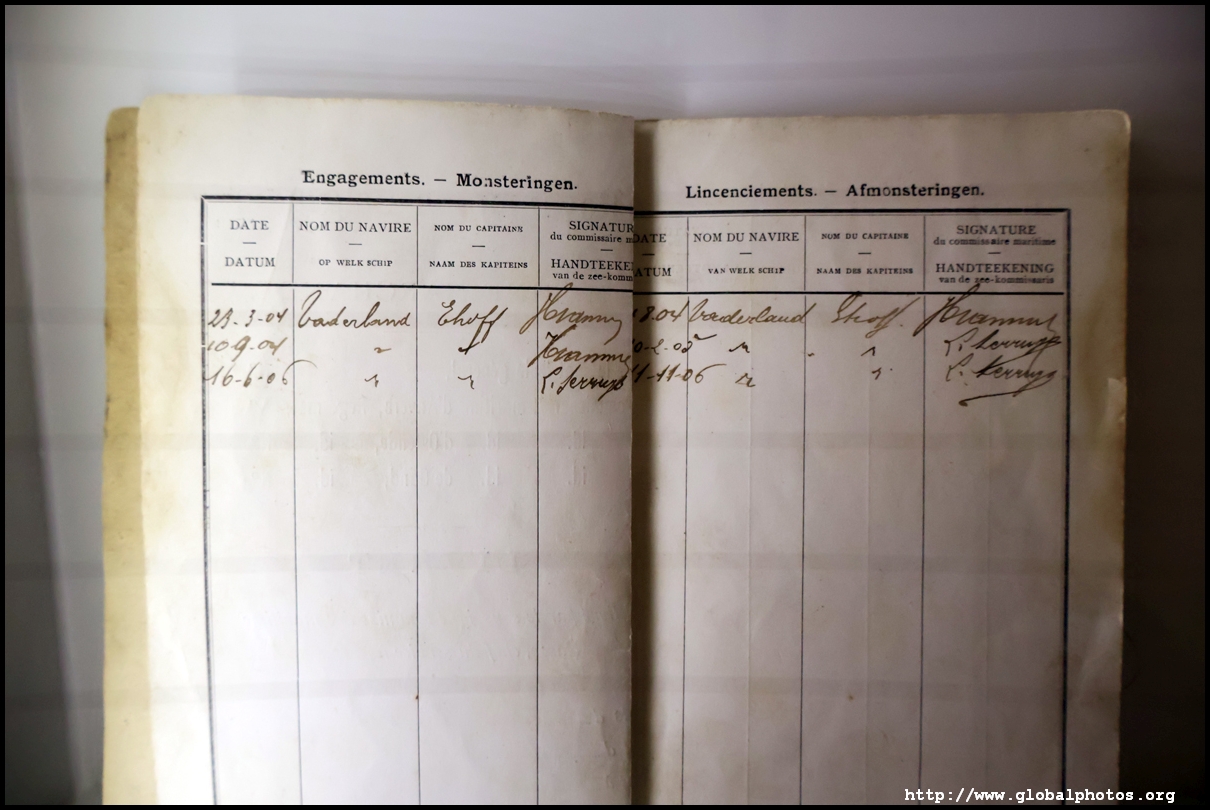 Engagements. — Monsteringen.
DATE — DATUM
NOM DU NAVIRE — OP WELK SCHIP
NOM DU CAPITAINE — NAAM DES KAPITEINS
SIGNATUR du commissaire m — HANDTEEKEN van de zee-komm
23-3-04 Vaderland Ehoff
10-9-04 " "
16-6-06 " "
Lincenciements. — Afmonsteringen.
DATE — DATUM
NOM DU NAVIRE — VAN WELK SCHIP
NOM DU CAPITAINE — NAAM DES KAPITEINS
SIGNATURE du commissaire maritime — HANDTEEKENING van de zee-kommissaris
8.04 Vaderland Ehoff.
" "
11-06 " "
http://www.globalphotos.org